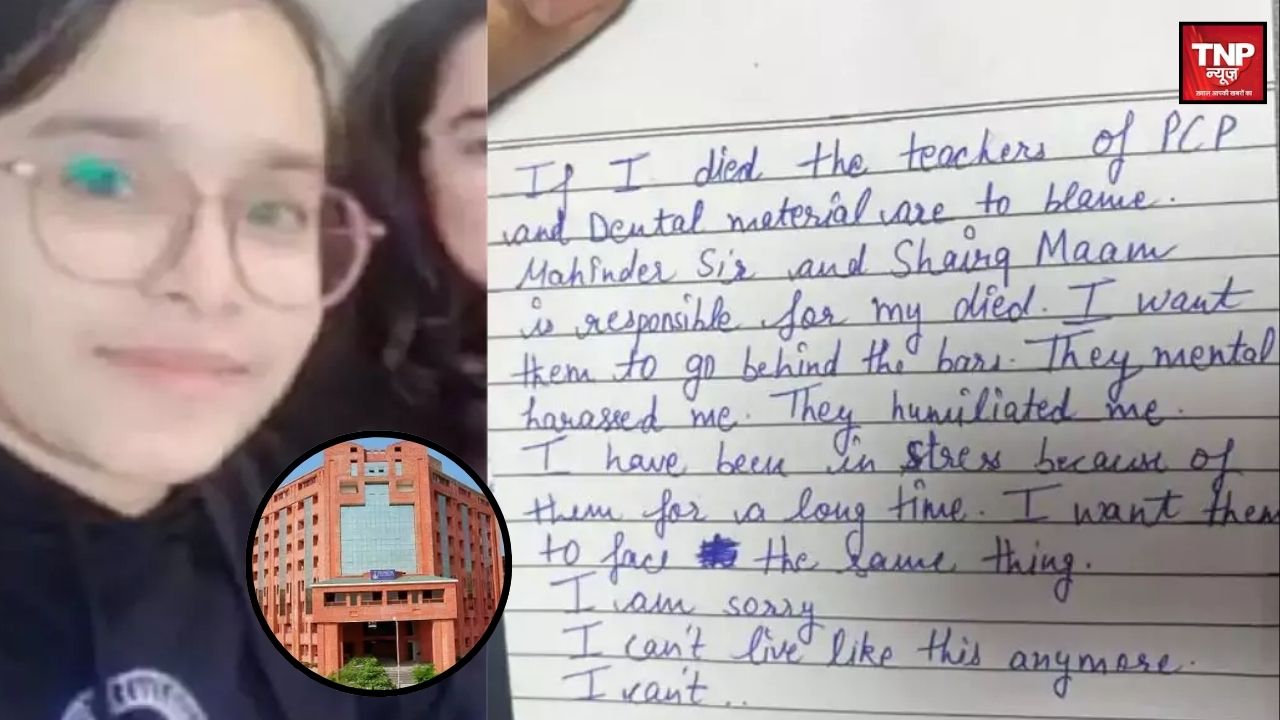 TNP
न्यूज़
आपकी खबरों का
If I died the teachers of PCP
and Dental material are to blame.
Mahinder Sir and Shairg Maam
is responsible for my died. I want
them to go behind the bars. They mental
harassed me. They humiliated me.
I have been in stress because of
them for a long time. I want them
to face the same thing.
I am sorry
I can't live like this anymore.
I can't..